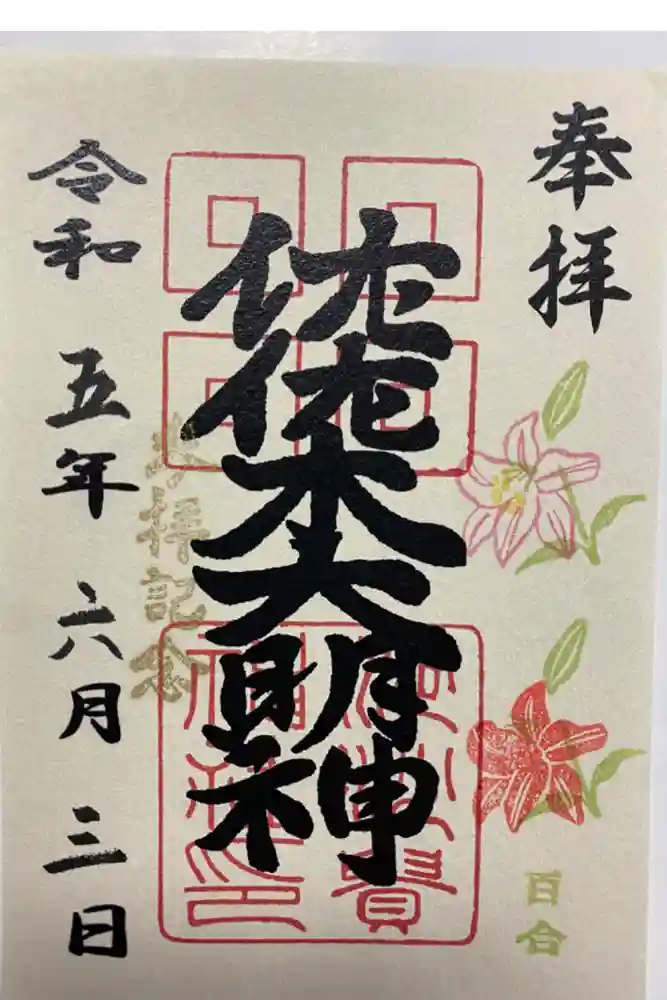 奉拝
佐佐木大明神
参拝記念
令和五年六月三日
百合